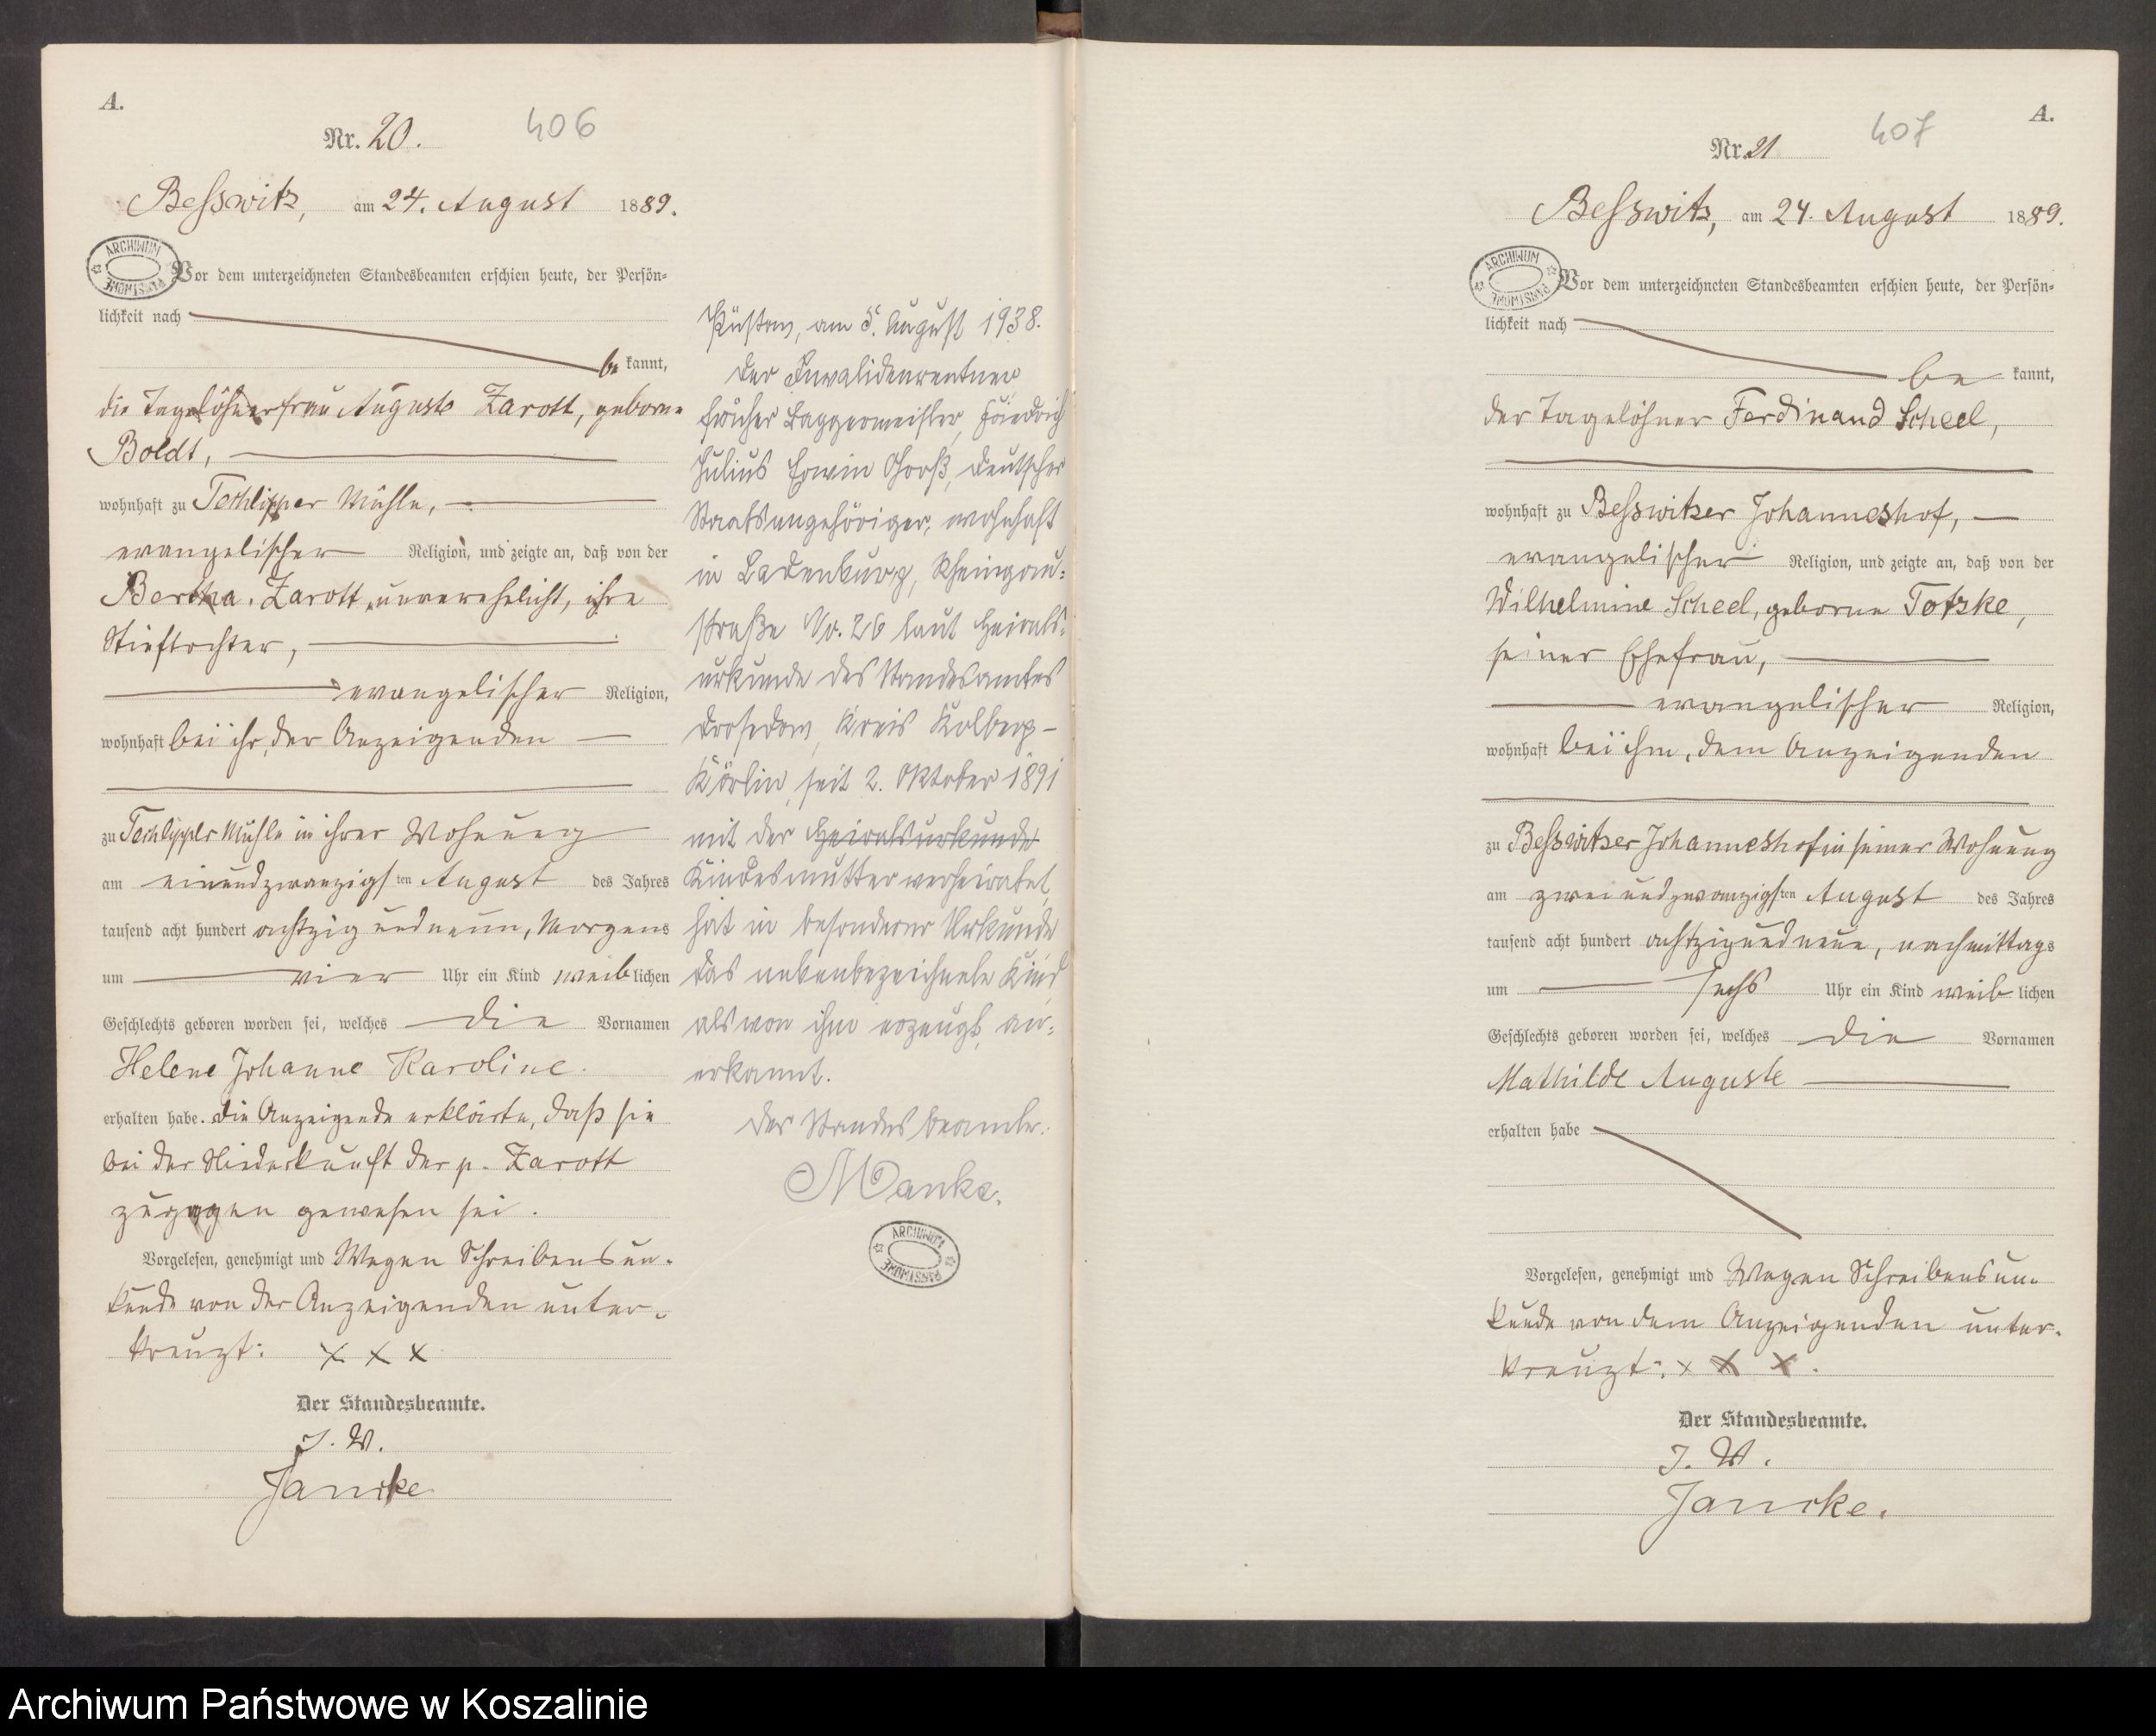 A.
Nr. 20.
406
Besswitz, am 24. August 1889.
Vor dem unterzeichneten Standesbeamten erschien heute, der Persön-
lichkeit nach
be kannt,
die Tagelöhnerfrau Auguste Zarott, geborne
Boldt,
wohnhaft zu Techlipper Mühle,
evangelischer Religion, und zeigte an, daß von der
Bertha Zarott, unverehelicht, ihre
Stieftochter,
evangelischer Religion,
wohnhaft bei ihr, der Anzeigenden
zu Techlipper Mühle in ihrer Wohnung
am einundzwanzigsten August des Jahres
tausend acht hundert achtzig und neun, Morgens
um vier Uhr ein Kind weiblichen
Geschlechts geboren worden sei, welches die Vornamen
Helene Johanne Karoline.
erhalten habe. Die Anzeigende erklärte, daß sie
bei der Niederkunft der p. Zarott
zugegen gewesen sei.
Vorgelesen, genehmigt und Wegen Schreibensun-
kunde von der Anzeigenden unter-
kreuzt: x x x
Der Standesbeamte.
J. V.
Jancke
ARCHIWUM PAŃSTWOWE
Püstow, am 5. August 1938.
Der Invalidenrentner
früher Baggermeister, Friedrich
Julius Erwin Groß, deutscher
Staatsangehöriger, wohnhaft
in Ladenburg, Rheingau-
straße No. 26 laut Heirats-
urkunde des Standesamtes
Drosedow, Kreis Kolberg-
Körlin, seit 2. Oktober 1891
mit der Heiratsurkunde
Kindesmutter verheiratet,
hat in besonderer Urkunde
das nebenbezeichnete Kind
als von ihm erzeugt, an-
erkannt.
Der Standesbeamte.
Manke.
ARCHIWUM PAŃSTWOWE
A.
Nr. 21
407
Besswitz, am 24. August 1889.
Vor dem unterzeichneten Standesbeamten erschien heute, der Persön-
lichkeit nach
be kannt,
der Tagelöhner Ferdinand Scheel,
wohnhaft zu Besswitzer Johanneshof,
evangelischer Religion, und zeigte an, daß von der
Wilhelmine Scheel, geborne Totzke,
seiner Ehefrau,
evangelischer Religion,
wohnhaft bei ihm, dem Anzeigenden
zu Besswitzer Johanneshof in seiner Wohnung
am zweiundzwanzigsten August des Jahres
tausend acht hundert achtzig und neun, nachmittags
um sechs Uhr ein Kind weib lichen
Geschlechts geboren worden sei, welches die Vornamen
Mathilde Auguste
erhalten habe
Vorgelesen, genehmigt und Wegen Schreibensun-
kunde von dem Anzeigenden unter-
kreuzt: x x x.
Der Standesbeamte.
J. V.
Jancke.
ARCHIWUM PAŃSTWOWE
Archiwum Państwowe w Koszalinie